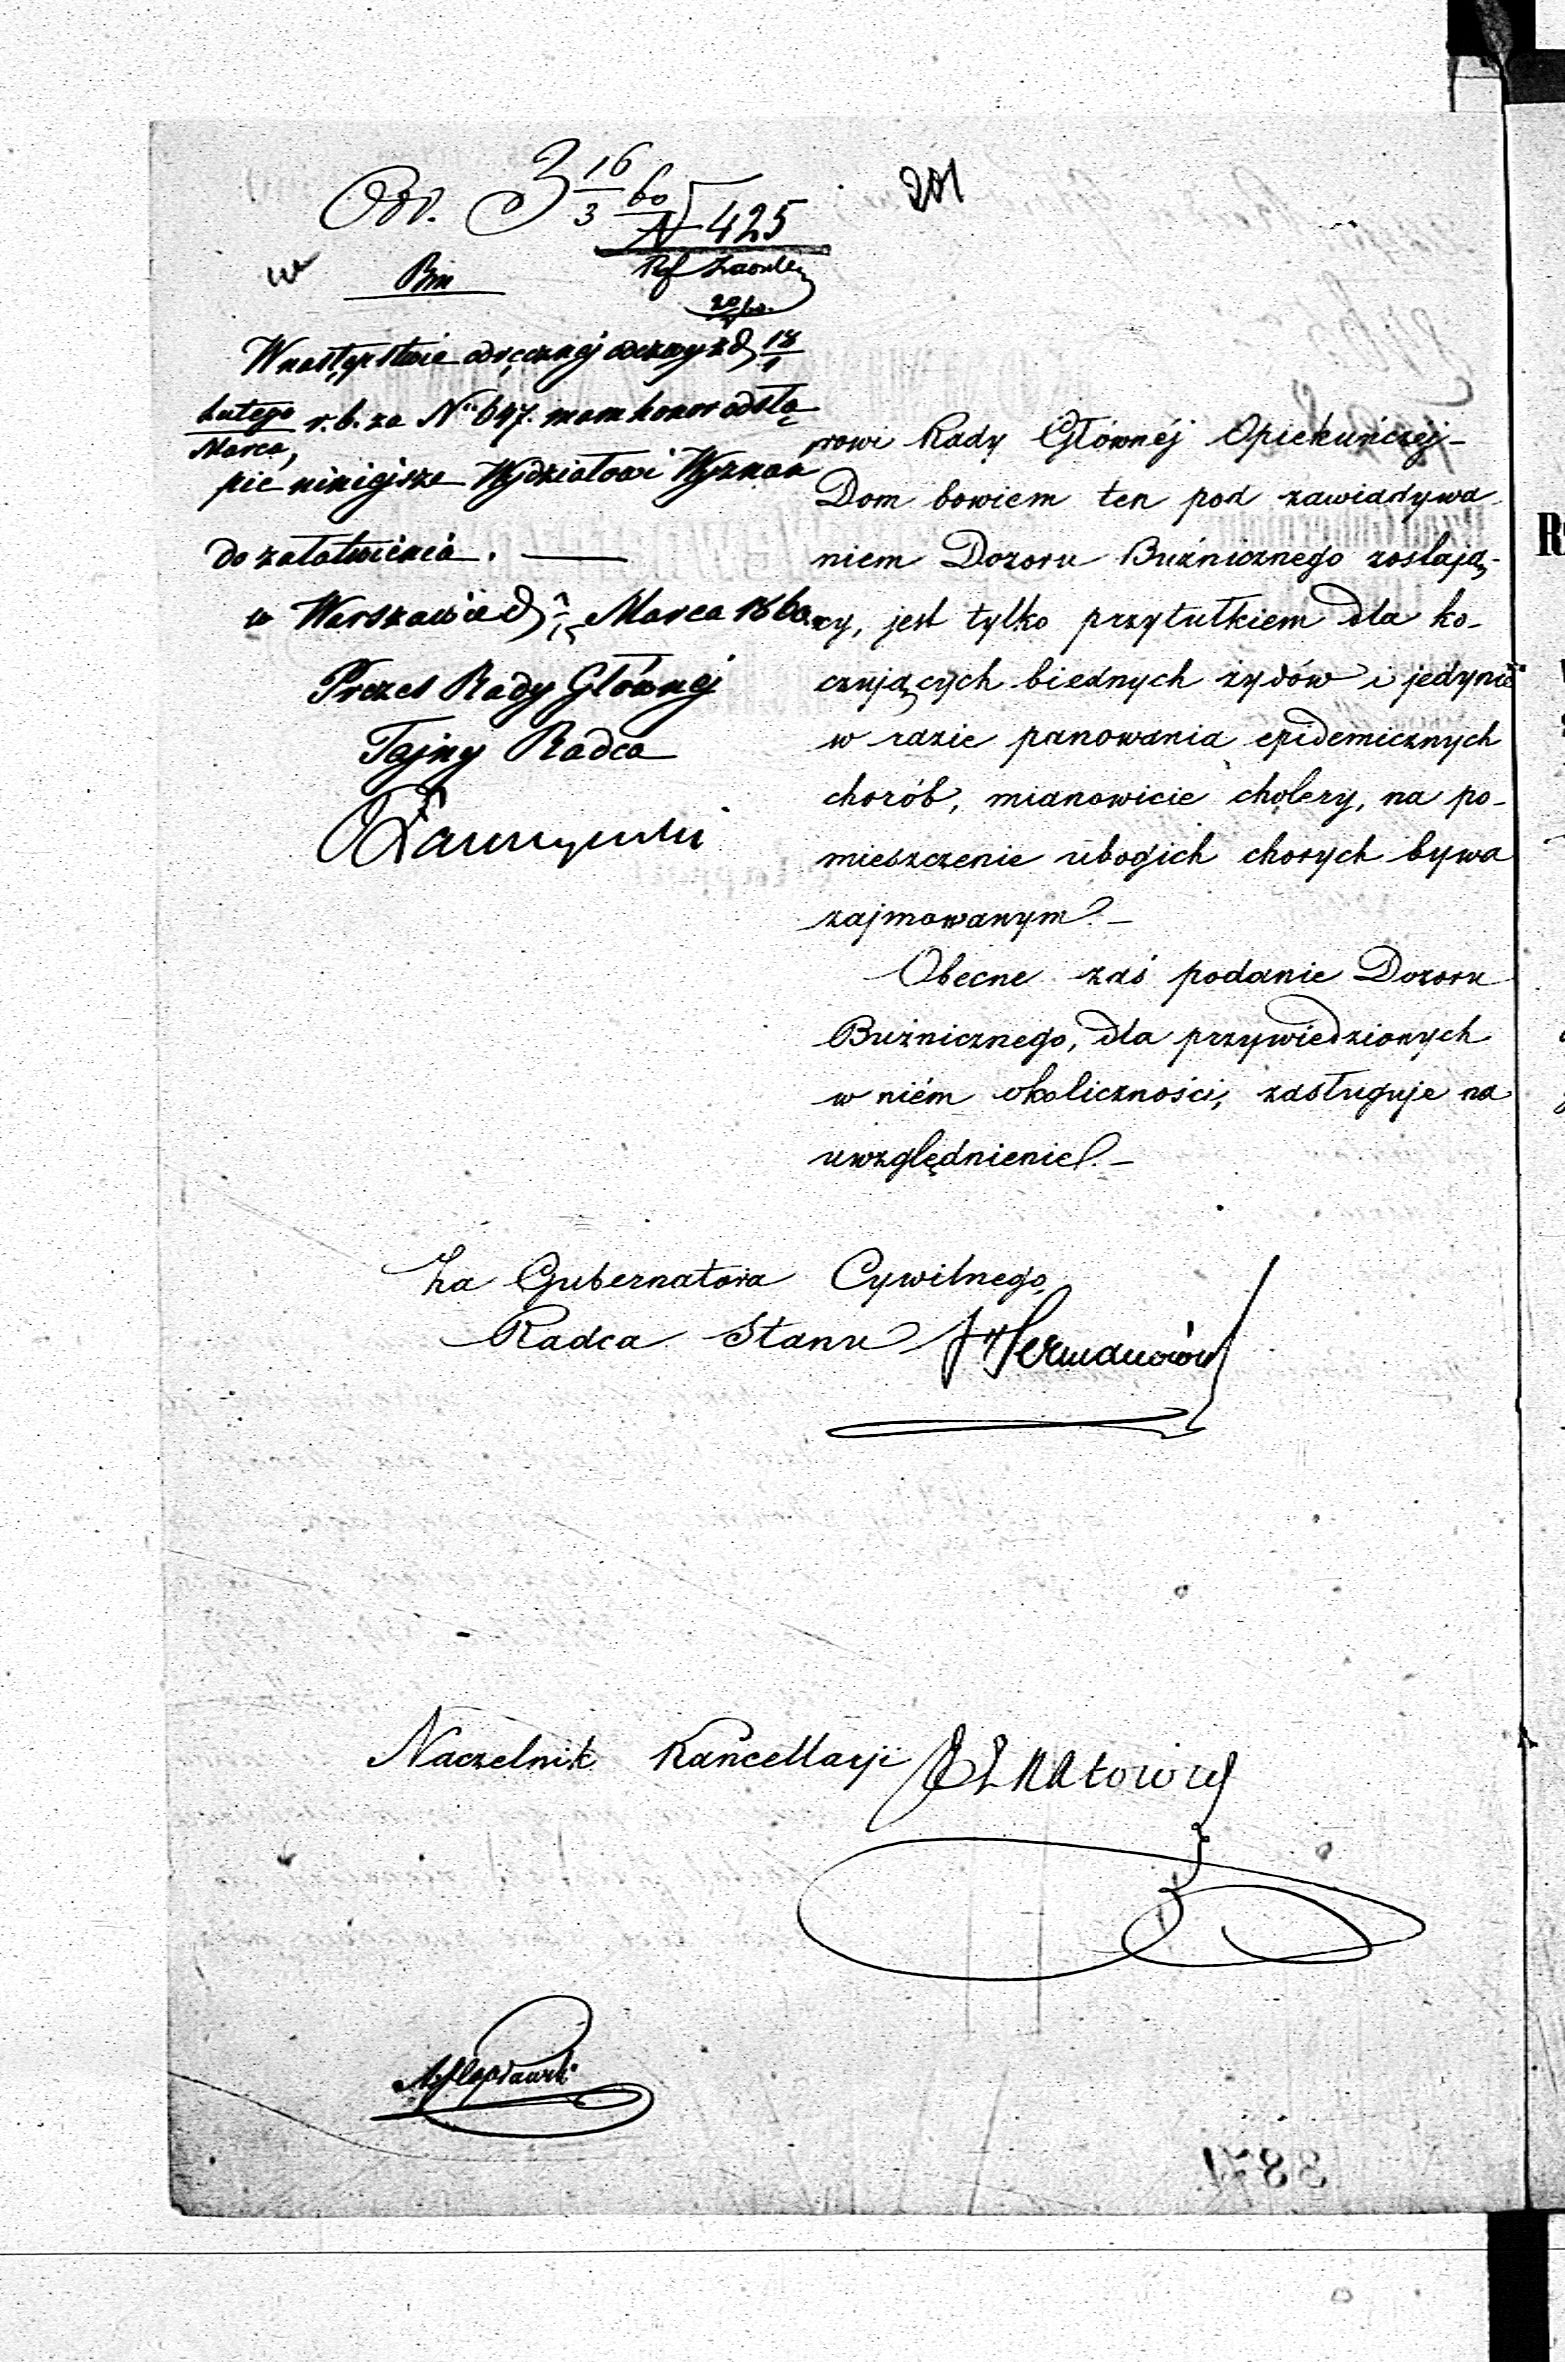 201
Odd. 3 16/3 60
N 425
Bm
Ref
20/3 60.
W następstwie odręcznéj odezwy z d. 18/1
Lutego/Marca, r. b. za No 647. mam honor odstą
pić niniejsze Wydziałowi Wyznań
do załatwienia. —
w Warszawie d. 3/15 Marca 1860.
Prezes Rady Głównej
Tajny Radca
rowi Rady Głównéj Opiekuńczej –
Dom bowiem ten pod zawiadywa
niem Dozoru Buźnicznego zostają-
cy, jest tylko przytułkiem dla ko-
czujących biednych żydów i jedynie
w razie panowania epidemicznych
chorób, mianowicie cholery, na po-
mieszczenie ubogich chorych bywa
zajmowanym. –
Obecne zaś podanie Dozoru
Buźnicznego, dla przywiedzionych
w niém okoliczności, zasługuje na
uwzględnienie. –
Za Gubernatora Cywilnego,
Radca Stanu
Naczelnik Kancellaryi